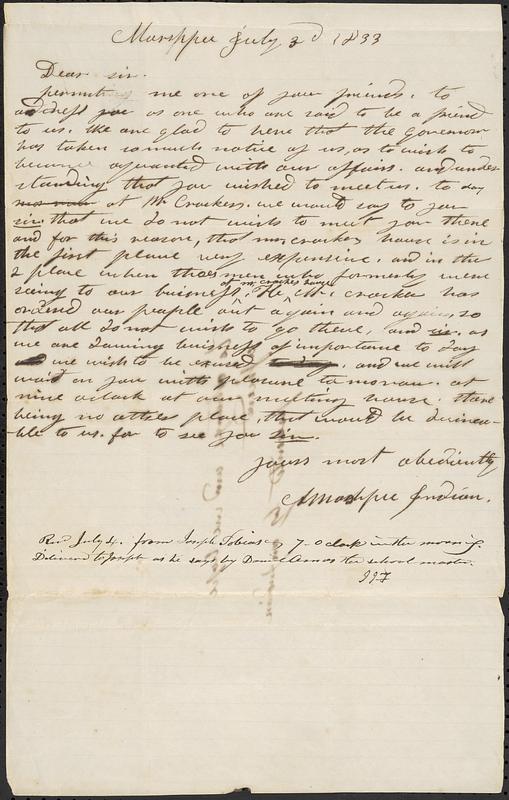 Marshpee July 3d 1833
Dear sir.
permit me one of your friends. to
address you as one who are said to be a friend
to us. We are glad to here that the Governor
has taken so much notice of us, as to wish to
become aquanted with our affairs. and under-
standing that you wished to meet us. to day
at Mr Crockers. we would say to you
sir. that we do not wish to meet you there
and for this reason, that mr crocker house is in
the first place very expensive. and in the
2 place when those men who formerly were
seeing to our buisness, at mr crockes house He mr. crocker has
ordered our people out again and again, so
that all do not wish to go there, and sir. as
we are dooing buisness of importance to day
we wish to be excused. and we will
wait on you with pleasure tomorrow. at
nine oclock at our meeting house. there
being no other place, that would be desirea-
ble to us. for to see you sir.
yours most obediently
Marshpee Indian.
Recd July 4. from Joseph Tobias 7. O clock in the morning.
Delivered to Joseph as he says by Daniel Amos the school master.
JJF